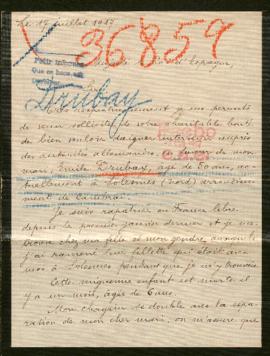 Le 17 juillet 1917
36859
Pedir informes
Que se haga
Drubay
Très respectueusement je me permets
de venir solliciter de votre charitable bonté
de bien vouloir daigner intervenir auprès
des autorités allemandes en faveur de mon
mari Emile Drubay, âgé de 50 ans, ac-
tuellement à Solesmes (Nord) arrondisse-
ment de Cambrai.
Je suis rapatriée en France libre
depuis le premier janvier dernier et je me
trouve chez ma fille et mon gendre, auxquels
j'ai ramené leur fillette qui était avec
moi à Solesmes pendant que je m'y trouvais
Cette mignonne enfant est morte il
y a un mois, âgée de 6 ans.
Mon chagrin se double avec la sépa-
ration de mon cher mari, on m'assure que